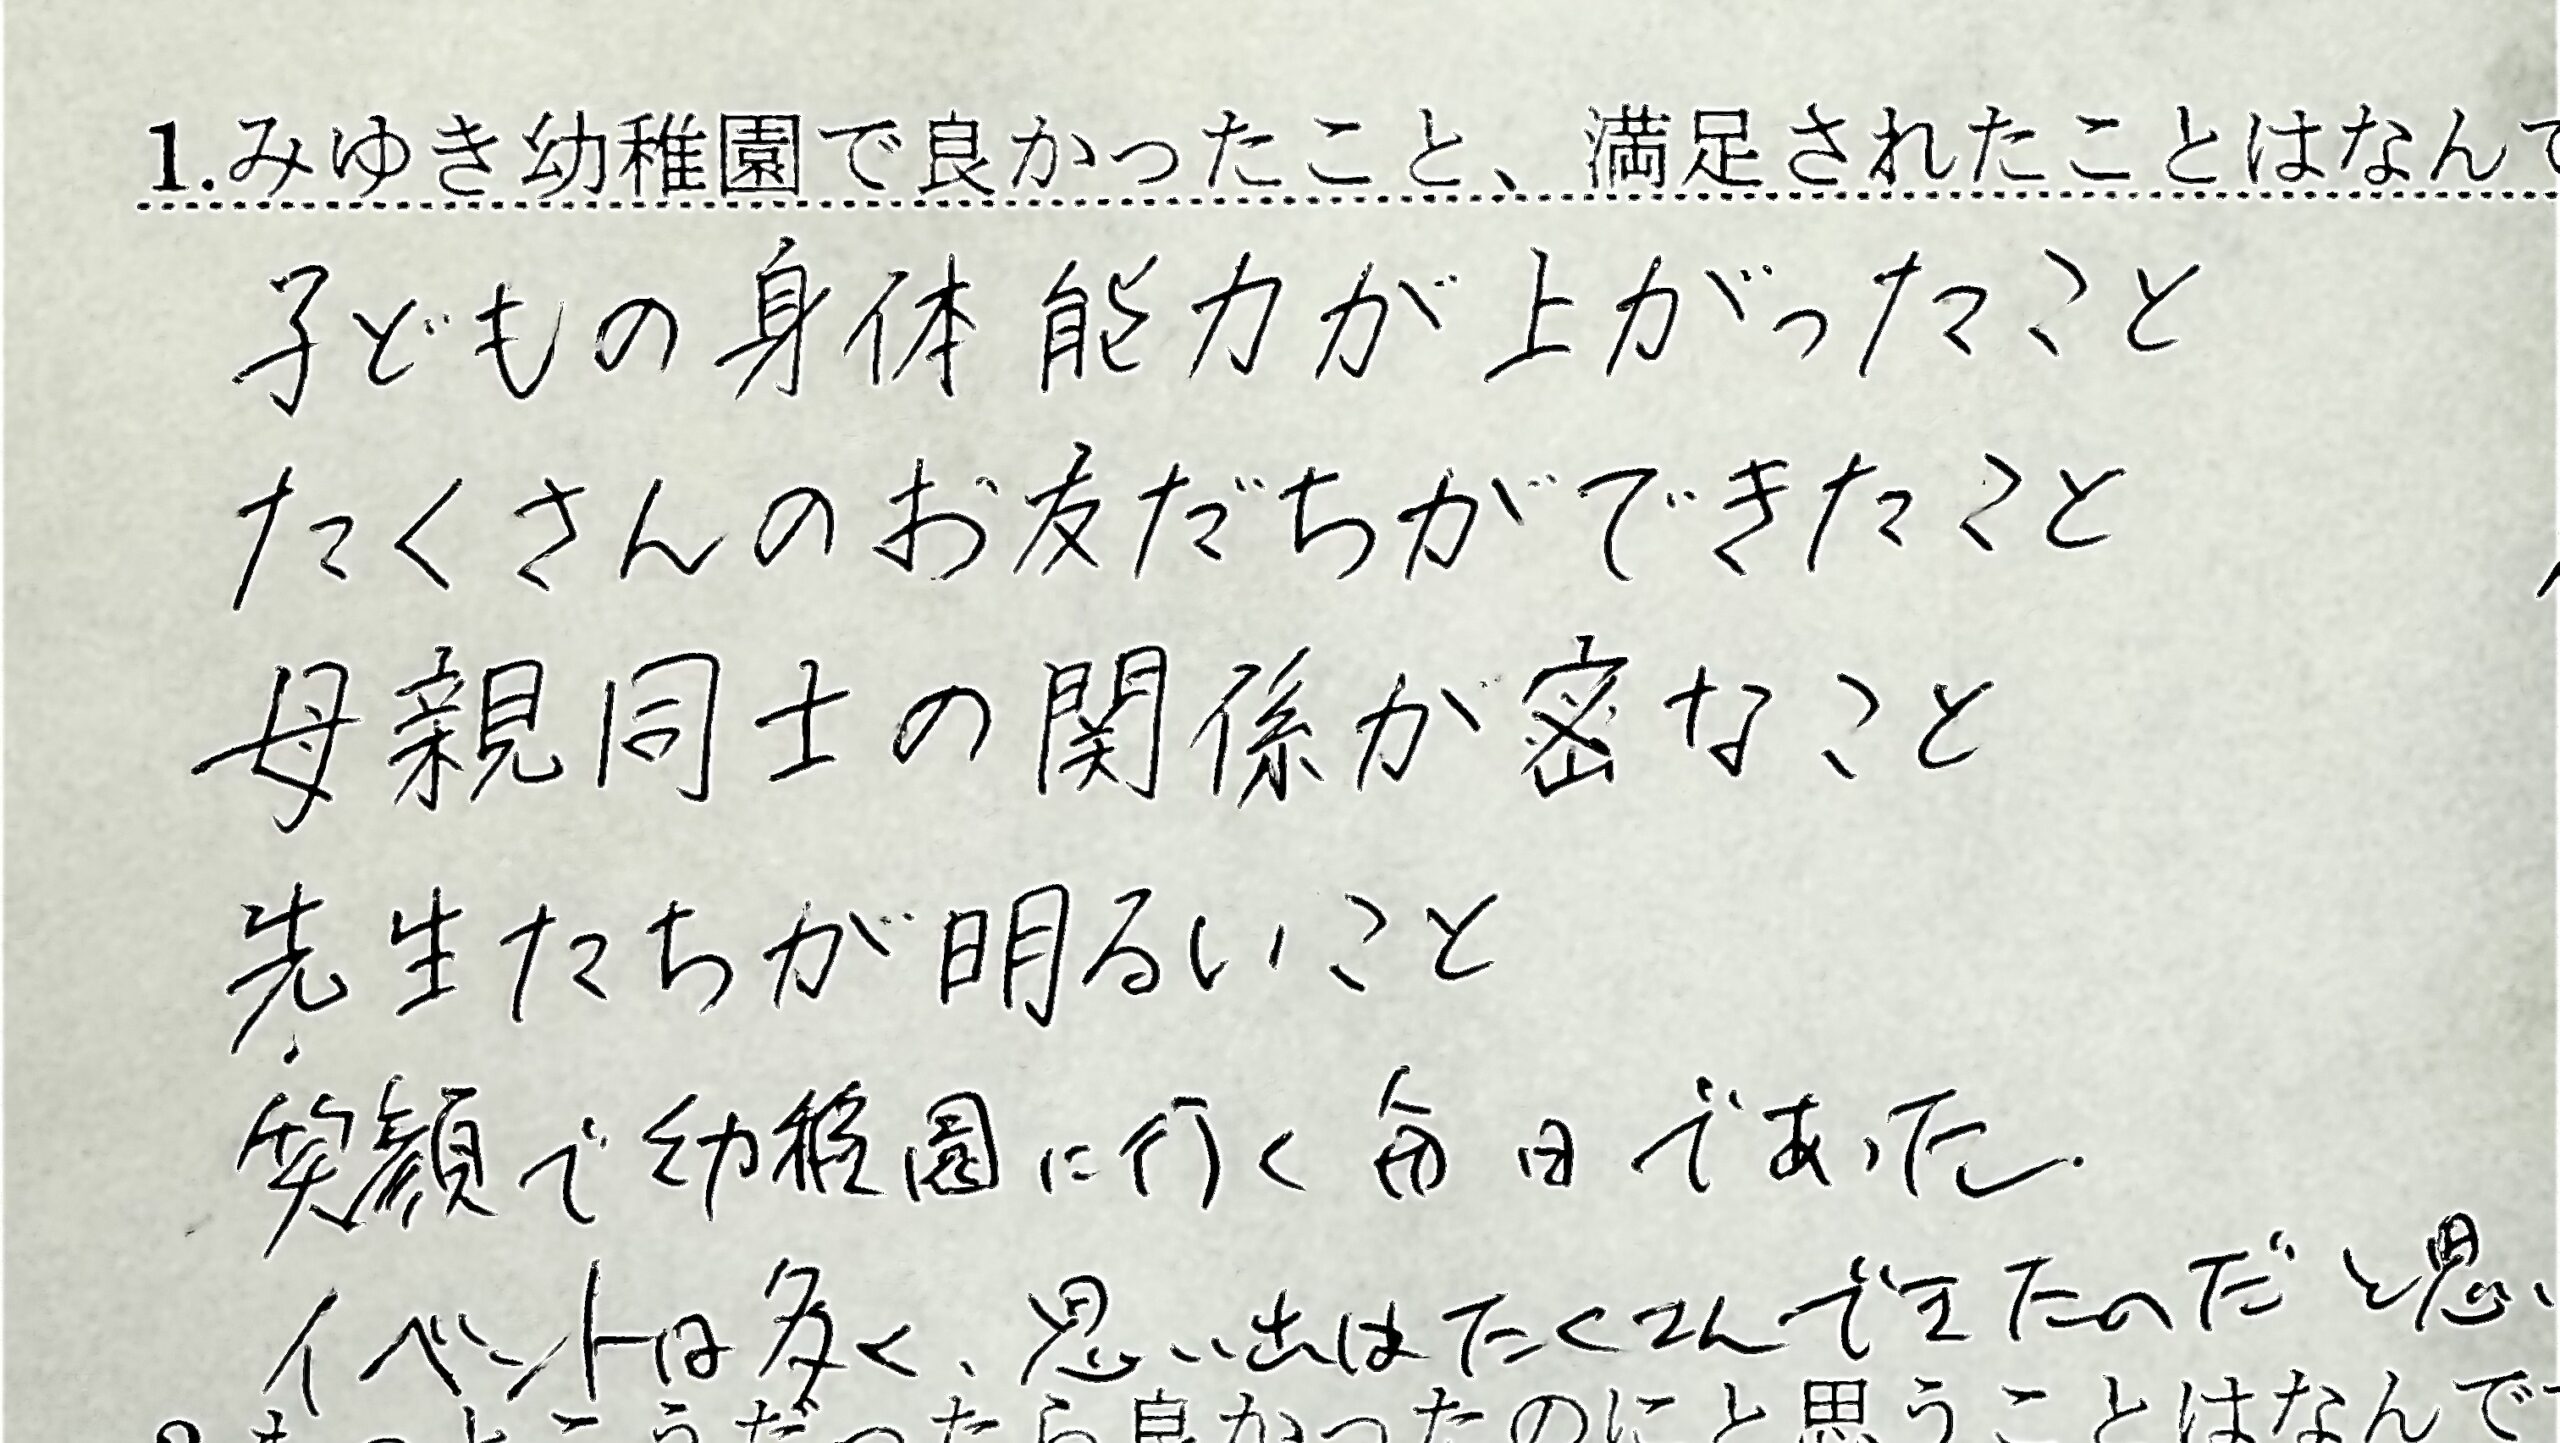 1.みゆき幼稚園で良かったこと、満足されたことはなんで
子どもの身体能力が上がったこと
たくさんのお友だちができたこと
母親同士の関係が密なこと
先生たちが明るいこと
笑顔で幼稚園に行く毎日であった.
イベントは多く、思い出はたくさんできたのだと思い
2.もっとこうだったら良かったのにと思うことはなんです